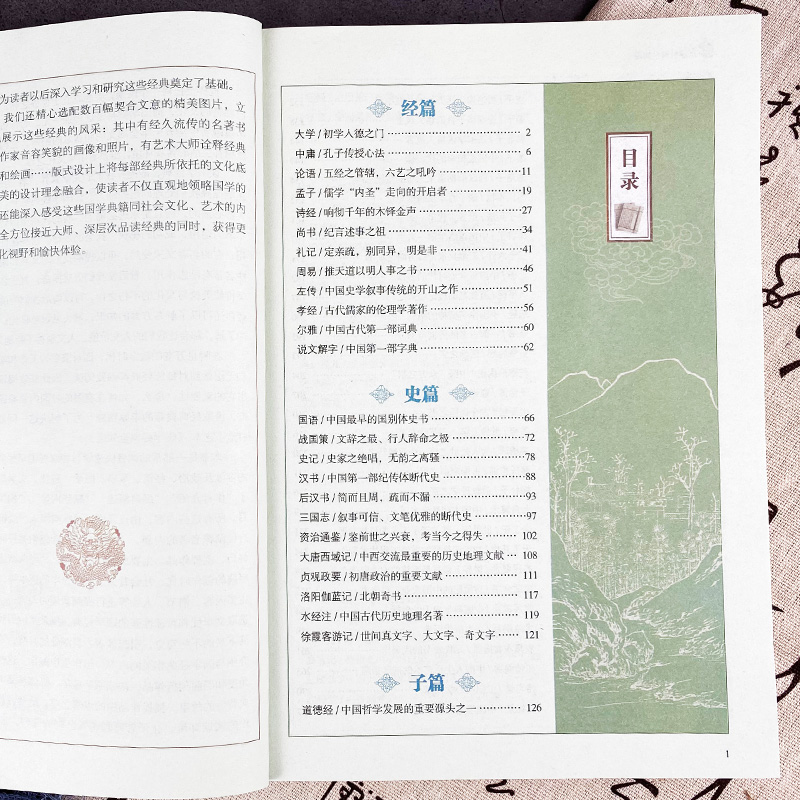 为读者以后深入学习和研究这些经典奠定了基础。
我们还精心选配数百幅契合文意的精美图片，立
展示这些经典的风采：其中有经久流传的名著书
作家音容笑貌的画像和照片，有艺术大师诠释经典
和绘画……版式设计上将每部经典所依托的文化底
美的设计理念融合，使读者不仅直观地领略国学的
还能深入感受这些国学典籍同社会文化、艺术的内
全方位接近大师、深层次品读经典的同时，获得更
化视野和愉快体验。
目录
经篇
大学/初学入德之门 2
中庸/孔子传授心法 6
论语/五经之管辖，六艺之吼吟 11
孟子/儒学“内圣”走向的开启者 19
诗经/响彻千年的木铎金声 27
尚书/纪言述事之祖 34
礼记/定亲疏，别同异，明是非 41
周易/推天道以明人事之书 46
左传/中国史学叙事传统的开山之作 51
孝经/古代儒家的伦理学著作 56
尔雅/中国古代第一部词典 60
说文解字/中国第一部字典 62
史篇
国语/中国最早的国别体史书 66
战国策/文辞之最、行人辞命之极 72
史记/史家之绝唱，无韵之离骚 78
汉书/中国第一部纪传体断代史 88
后汉书/简而且周，疏而不漏 93
三国志/叙事可信、文笔优雅的断代史 97
资治通鉴/鉴前世之兴衰，考当今之得失 102
大唐西域记/中西交流最重要的历史地理文献 108
贞观政要/初唐政治的重要文献 111
洛阳伽蓝记/北朝奇书 117
水经注/中国古代历史地理名著 119
徐霞客游记/世间真文字、大文字、奇文字 121
子篇
道德经/中国哲学发展的重要源头之一 126
1